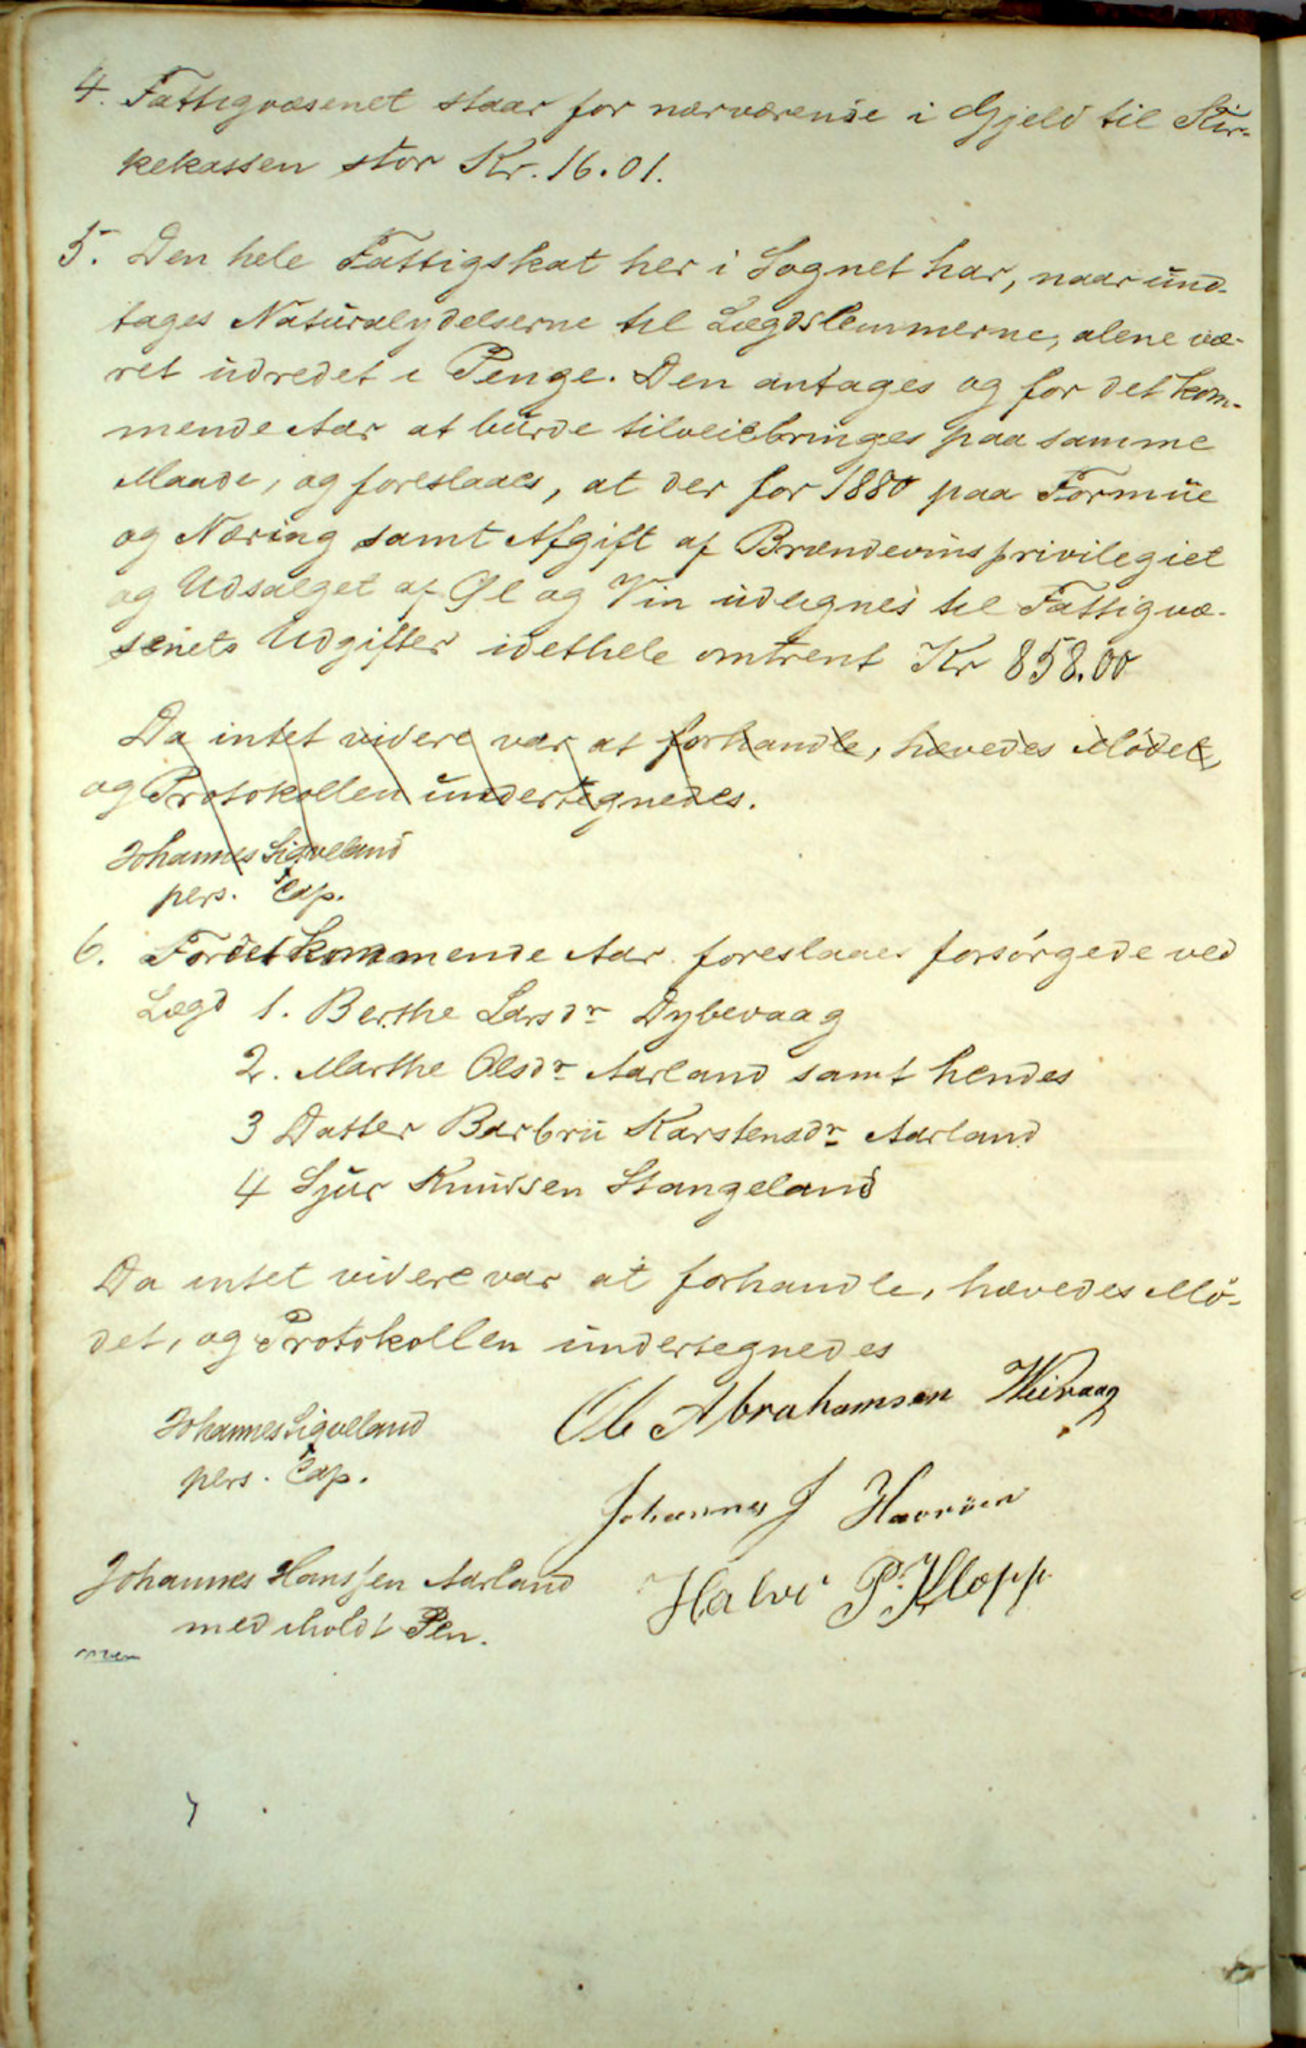 4. Fattigvæsenet staar for nærværende i Gjeld til Kir-
kekassen stor Kr. 16.01.
5. Den hele Fattigskat her i Sognet har, naar und-
tages Naturalydelserne til Lægdslemmerne, alene væ-
ret udredet i Penge. Den antages og for det kom-
mende Aar at burde tilveiebringes paa samme
Maade, og foreslaaes, at der for 1880 paa Formue
og Næring samt Afgift af Brændevinsprivilegiet
og Udsalget af Øl og Vin udlignes til Fattigvæ-
senets Udgifter idethele omtrent Kr 858.00
Da intet videre var at forhandle, hævedes Mödet,
og Protokollen undertegnedes.
Johannes Sigveland
pers. Cap.
6. For det kommende Aar foreslaaes forsörgede ved
Lægd 1. Berthe Larsdr Dybevaag
2. Marthe Olsdr Aarland samt hendes
3 Datter Barbru Karstensdr Aarland
4 Sjur Knudsen Stangeland
Da intet videre var at forhandle, hævedes Mö-
det, og Protokollen undertegnedes
Ole Abrahamsen
Johannes Sigvelland
pers. Cap.
Johannes J Havröen
Johannes Hanssen Aarland
med iholdt Pen.
Halvo P. Klopp